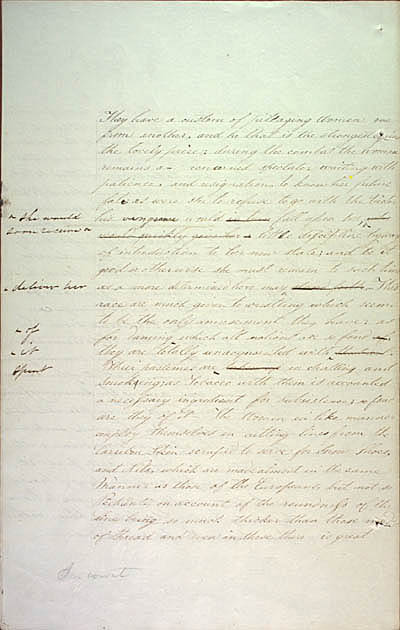 They have a custom of pillaging Women one
from another, and he that is the strongest
the lovely prize; during the combat the Women
remains a concerned spectator waiting with
patience and resignation to know her future
fate: as were she to refuse to go with the Victor
his vengeance would fall upon her,
- she would
soon receive a
little discipline by way
of introduction to her new state; and be it
good or otherwise she must remain to such time
- deliver her
as a more determined hero may This
race are much given to wrestling which seem
to be the only amusement they have; as
for dancing which all nations are so fond
- of
they are totally unacquainted with
- it
Other pastimes are in chatting and
spent
Smoking, as Tobacco with them is accounted
a necessary ingredient for subsistence, so fond
are they of it. The Women in like manner
employ themselves in cutting lines from the
Cariboo Skin scraped to serve for Snow shoes,
and Netts which are made almost in the same
Manner as those of the Europeans but not so
on account of the roundness of the
line being so much thicker than those made
of thread and even in these there is great